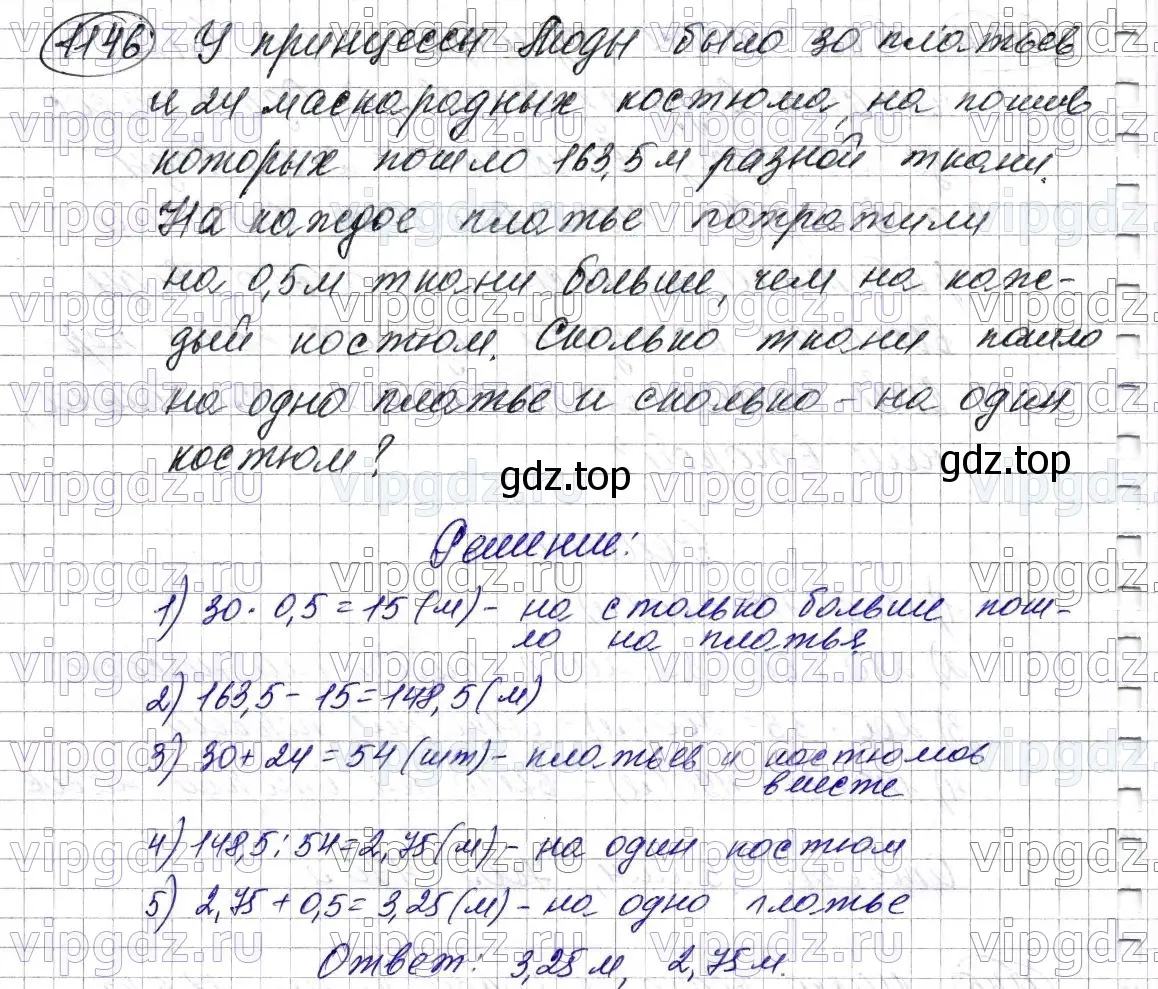 1146 У принцессы Моды было 30 платьев
и 24 маскарадных костюма, на пошив
которых пошло 163,5 м разной ткани.
На каждое платье потратили
на 0,5 м ткани больше, чем на каж-
дый костюм. Сколько ткани пошло
на одно платье и сколько - на один
костюм?
gdz.top gdz.top
Решение:
1) 30 · 0,5 = 15 (м) - на столько больше пош-
ло на платья
2) 163,5 - 15 = 148,5 (м)
3) 30 + 24 = 54 (шт) - платьев и костюмов
вместе
4) 148,5 : 54 = 2,75 (м) - на один костюм
5) 2,75 + 0,5 = 3,25 (м) - на одно платье
Ответ: 3,25 м, 2,75 м.